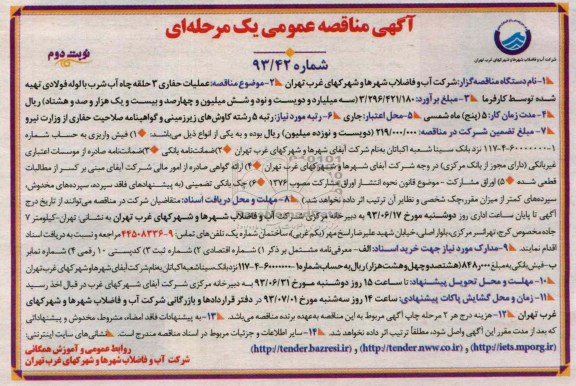 آگهی مناقصه عمومی یک مرحله‌ای
شرکت آب و فاضلاب شهرها و شهرکهای غرب تهران
نوبت دوم
شماره ۹۳/۴۲
۱- نام دستگاه مناقصه‌گزار: شرکت آب و فاضلاب شهرها و شهرکهای غرب تهران ۲- موضوع مناقصه: عملیات حفاری ۳ حلقه چاه آب شرب با لوله فولادی تهیه
شده توسط کارفرما ۳- مبلغ برآورد: ۳/۲۹۶/۴۲۱/۱۸۰ (سه میلیارد و دویست و نود و شش میلیون و چهارصد و بیست و یک هزار و صد و هشتاد) ریال
۴- مدت زمان کار: ۵ (پنج) ماه شمسی ۵- محل اعتبار: جاری ۶- رتبه مورد نیاز: رتبه ۵ رشته کاوش‌های زیرزمینی و گواهینامه صلاحیت حفاری از وزارت نیرو
۷- مبلغ تضمین شرکت در مناقصه: ۲۱۹/۰۰۰/۰۰۰ (دویست و نوزده میلیون) ریال بوده و به یکی از انواع ذیل می‌باشد: ۱) فیش واریزی به حساب شماره
۱۱۷-۴-۶۰۰۰۰۰۰-۱ نزد بانک سینا شعبه اکباتان به‌نام شرکت آبفای شهرها و شهرکهای غرب تهران ۲) ضمانتنامه بانکی ۳) ضمانتنامه صادره از موسسات اعتباری
غیربانکی (دارای مجوز از بانک مرکزی) در وجه شرکت آبفای شهرها و شهرکهای غرب تهران ۴) ارائه گواهی صادره از امور مالی شرکت آبفای مبنی بر کسر از مطالبات
قطعی شده ۵) اوراق مشارکت - موضوع قانون نحوه انتشار اوراق مشارکت مصوب ۱۳۷۶ ۶) چک بانکی تضمینی (به پیشنهادهای فاقد سپرده، سپرده‌های مخدوش
سپرده‌های کمتر از میزان مقرر، چک شخصی و نظایر آن ترتیب اثر داده نخواهد شد) ۸- مهلت و محل دریافت اسناد: متقاضیان شرکت در مناقصه می‌توانند از تاریخ درج
آگهی تا پایان ساعت اداری روز دوشنبه مورخ ۹۳/۰۶/۱۷ به دبیرخانه مرکزی شرکت آب و فاضلاب شهرها و شهرکهای غرب تهران به نشانی: تهران-کیلومتر ۷
جاده مخصوص کرج، تهرانسر مرکزی، بلوار اصلی، خیابان شهید علیرضا راسخ مهر (یکم غربی)، ساختمان شماره یک، تلفن‌های تماس: ۹-۴۴۵۰۸۳۳۶ مراجعه و نسبت به دریافت اسناد
اقدام نمایند. ۹- مدارک مورد نیاز جهت خرید اسناد: الف- معرفی‌نامه مشتمل بر ذکر ۱) شماره اقتصادی ۲) شماره ثبت ۳) کدپستی ۱۰ رقمی ۴) شماره نمابر
ب- فیش بانکی به مبلغ ۸۴۸/۰۰۰ (هشتصد و چهل و هشت هزار) ریال به حساب شماره ۱-۶۰۰۰۰۰۰-۴-۱۱۷ نزد بانک سینا شعبه اکباتان به‌نام شرکت آبفای شهرها و شهرکهای غرب تهران
۱۰- مهلت و محل تحویل پیشنهاد: تا ساعت ۱۵ روز دوشنبه مورخ ۹۳/۰۶/۳۱ به دبیرخانه مرکزی شرکت آبفای شهرها و شهرکهای غرب در قبال اخذ رسید
۱۱- زمان و محل گشایش پاکات پیشنهادی: ساعت ۱۴ روز سه‌شنبه مورخ ۹۳/۰۷/۰۱ در دفتر قراردادها و بازرگانی شرکت آب و فاضلاب شهرها و شهرکهای
غرب تهران ۱۲- هزینه درج هر ۲ مرحله چاپ آگهی مربوط به این مناقصه به‌عهده برنده مناقصه می‌باشد. ۱۳- به پیشنهادات فاقد امضاء، مشروط، مخدوش و پیشنهاداتی
که بعد از مدت مقرر این آگهی واصل شود، مطلقاً ترتیب اثر داده نخواهد شد. ۱۴- سایر اطلاعات و جزئیات مربوط در اسناد مناقصه مندرج است. نشانی‌های سایت اینترنتی:
(http://iets.mporg.ir) و (http://tender.nww.co.ir) و (http://tender.bazresi.ir)
روابط عمومی و آموزش همگانی
شرکت آب و فاضلاب شهرها و شهرکهای غرب تهران